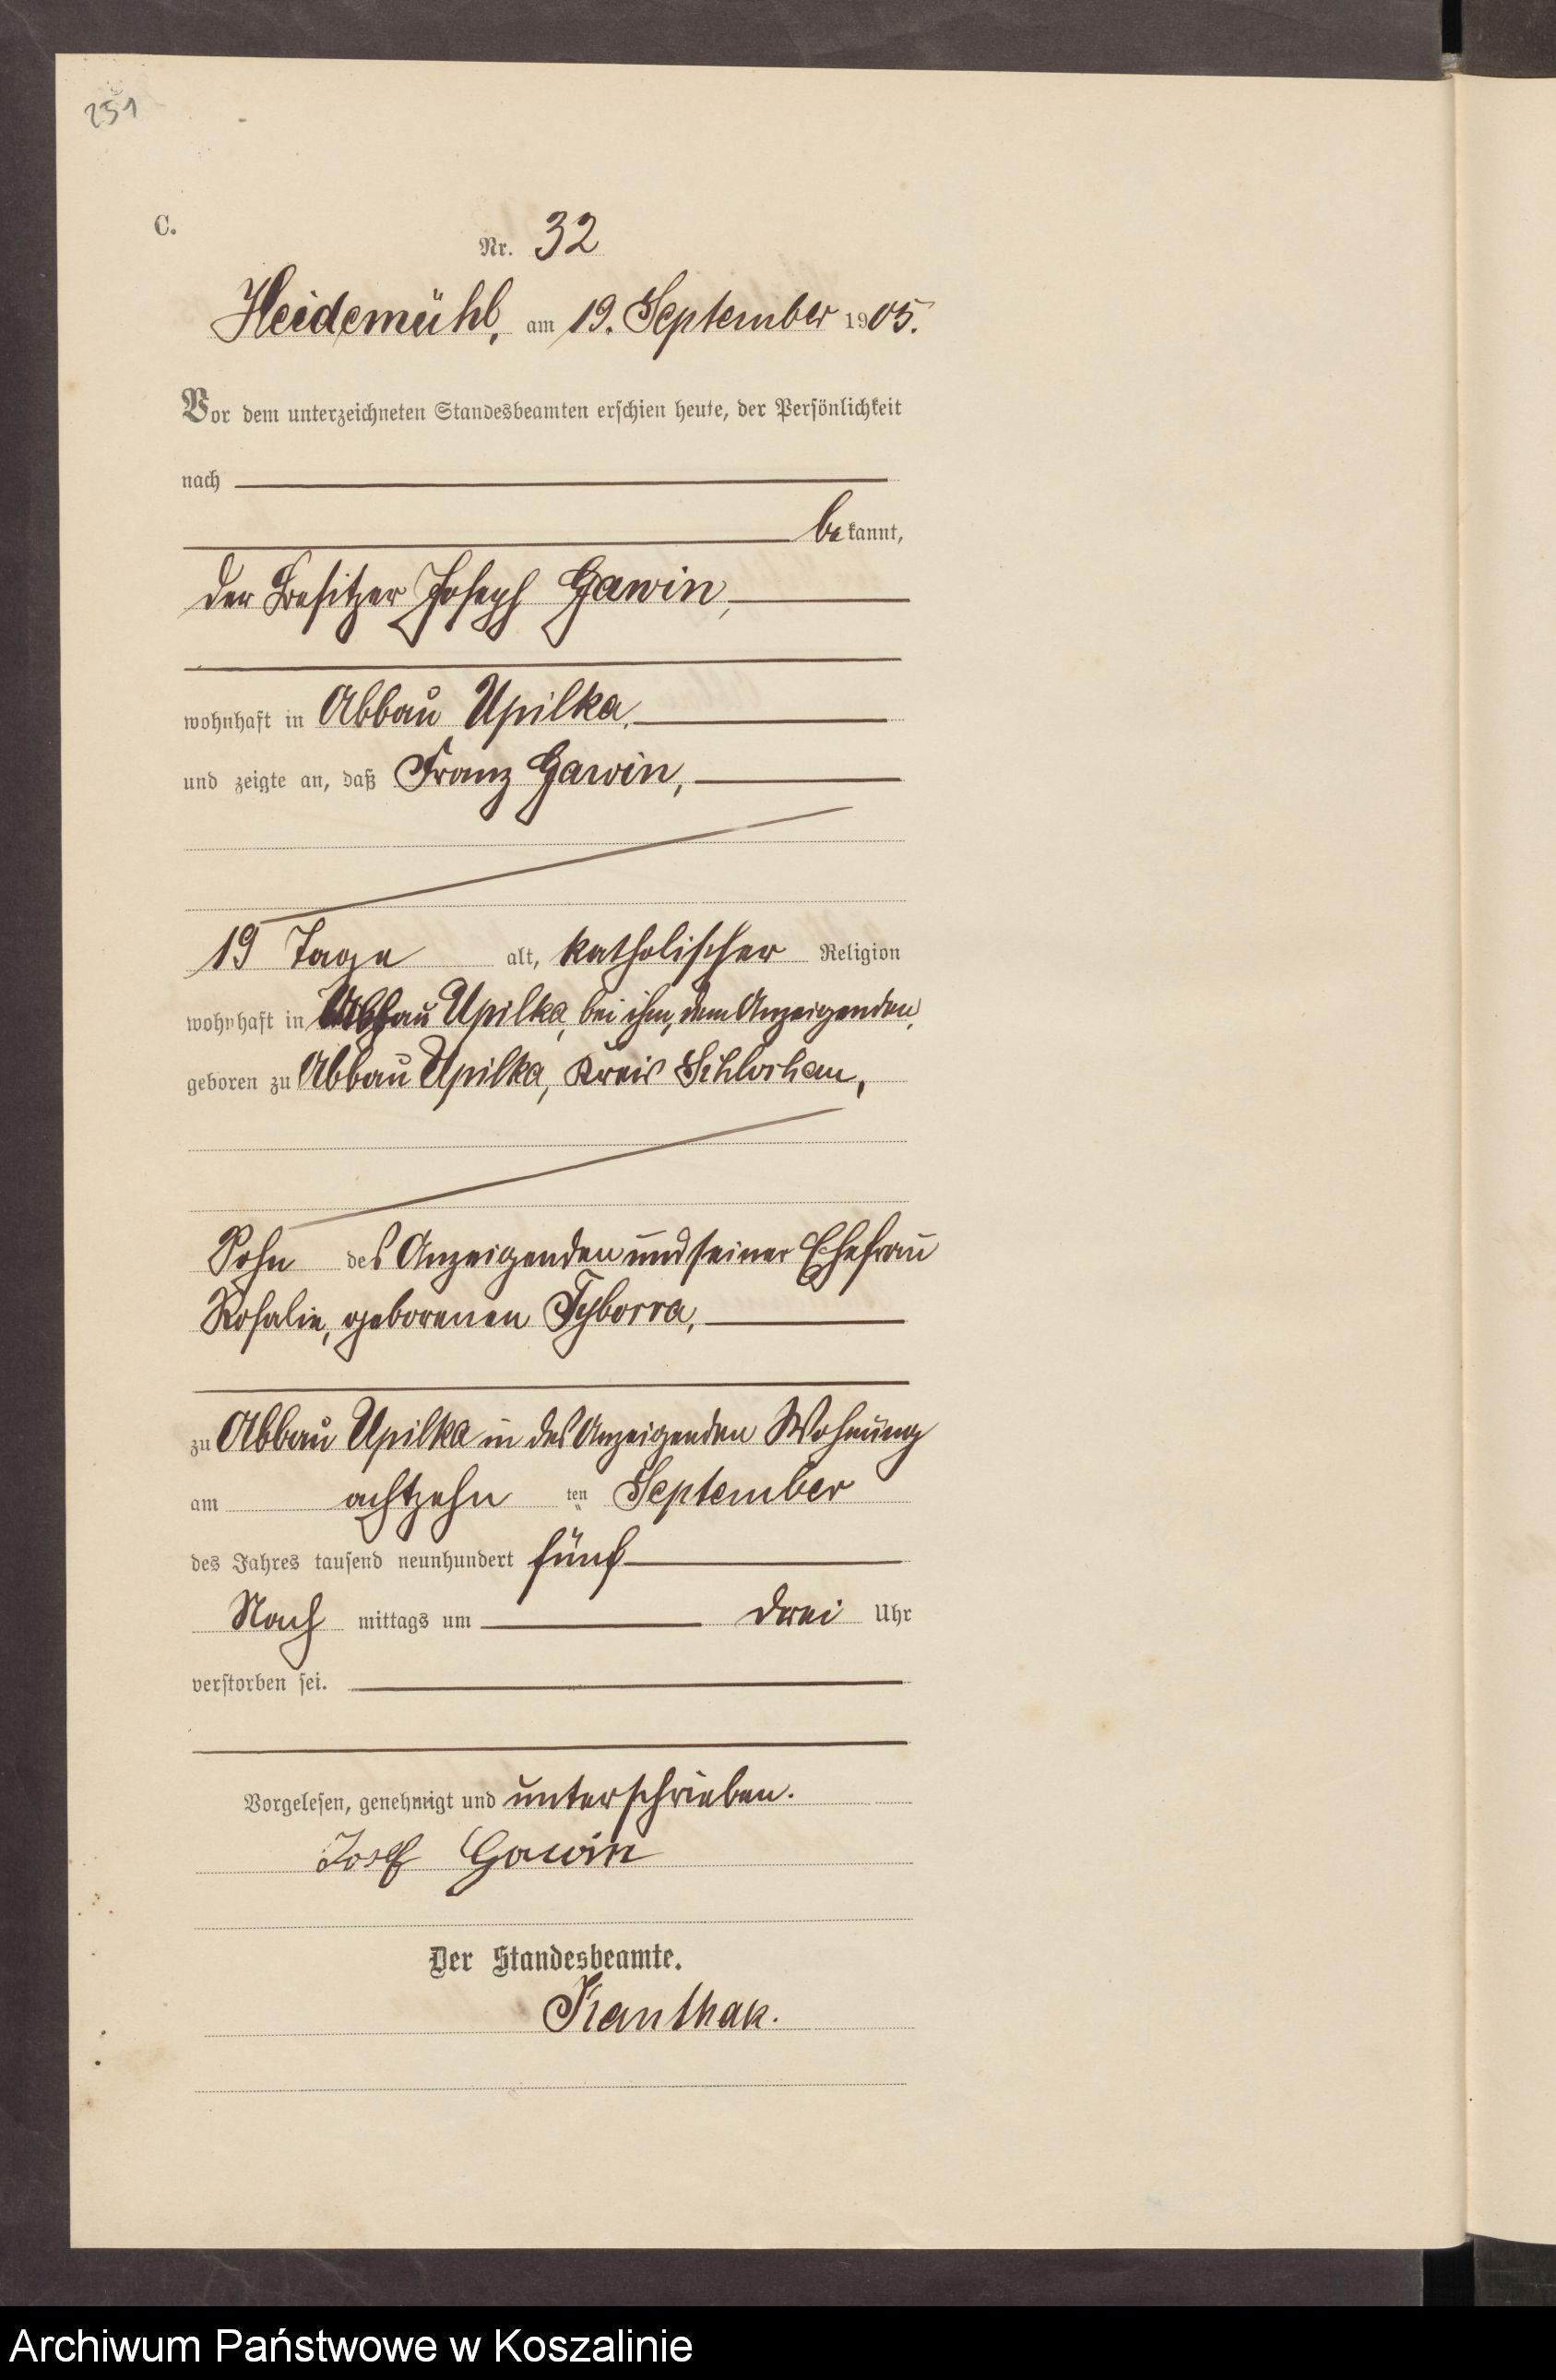 251
C.
Nr. 32
Heidemühl, am 19. September 1905.
Vor dem unterzeichneten Standesbeamten erschien heute, der Persönlichkeit
nach
bekannt,
der Besitzer Joseph Gawin,
wohnhaft in Abbau Upilka,
und zeigte an, daß Franz Gawin,
19 Tage alt, katholischer Religion
wohnhaft in Abbau Upilka, bei ihm, dem Anzeigenden,
geboren zu Abbau Upilka, Kreis Schlochau,
Sohn des Anzeigenden und seiner Ehefrau
Rosalie, geborenen Tyborra,
zu Abbau Upilka in des Anzeigenden Wohnung
am achtzehn ten September
des Jahres tausend neunhundert fünf
Nach mittags um drei Uhr
verstorben sei.
Vorgelesen, genehmigt und unterschrieben.
Josef Gawin
Der Standesbeamte.
Kanthak.
Archiwum Państwowe w Koszalinie